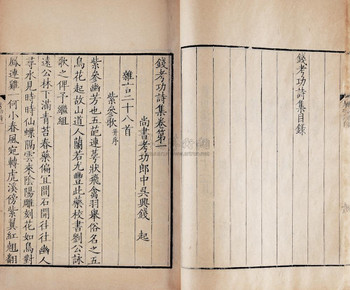 錢考功詩集目錄
錢考功詩集卷第一
尚書考功郎中吳興錢 起
雜言二十八首
紫參歌 并序
紫參幽芳也五葩連萼狀飛禽羽舉俗名之五
鳥花起故山道人蘭若尤豐此藥校書劉公詠
歌之俾予繼組
遠公林下滿青苔春藥偏宜間石開往往幽人
尋水見時時仙蝶隔雲來陰陽雕刻花如鳥對
鳳連雞一何小春風宛轉虎溪傍紫翼紅翹翻